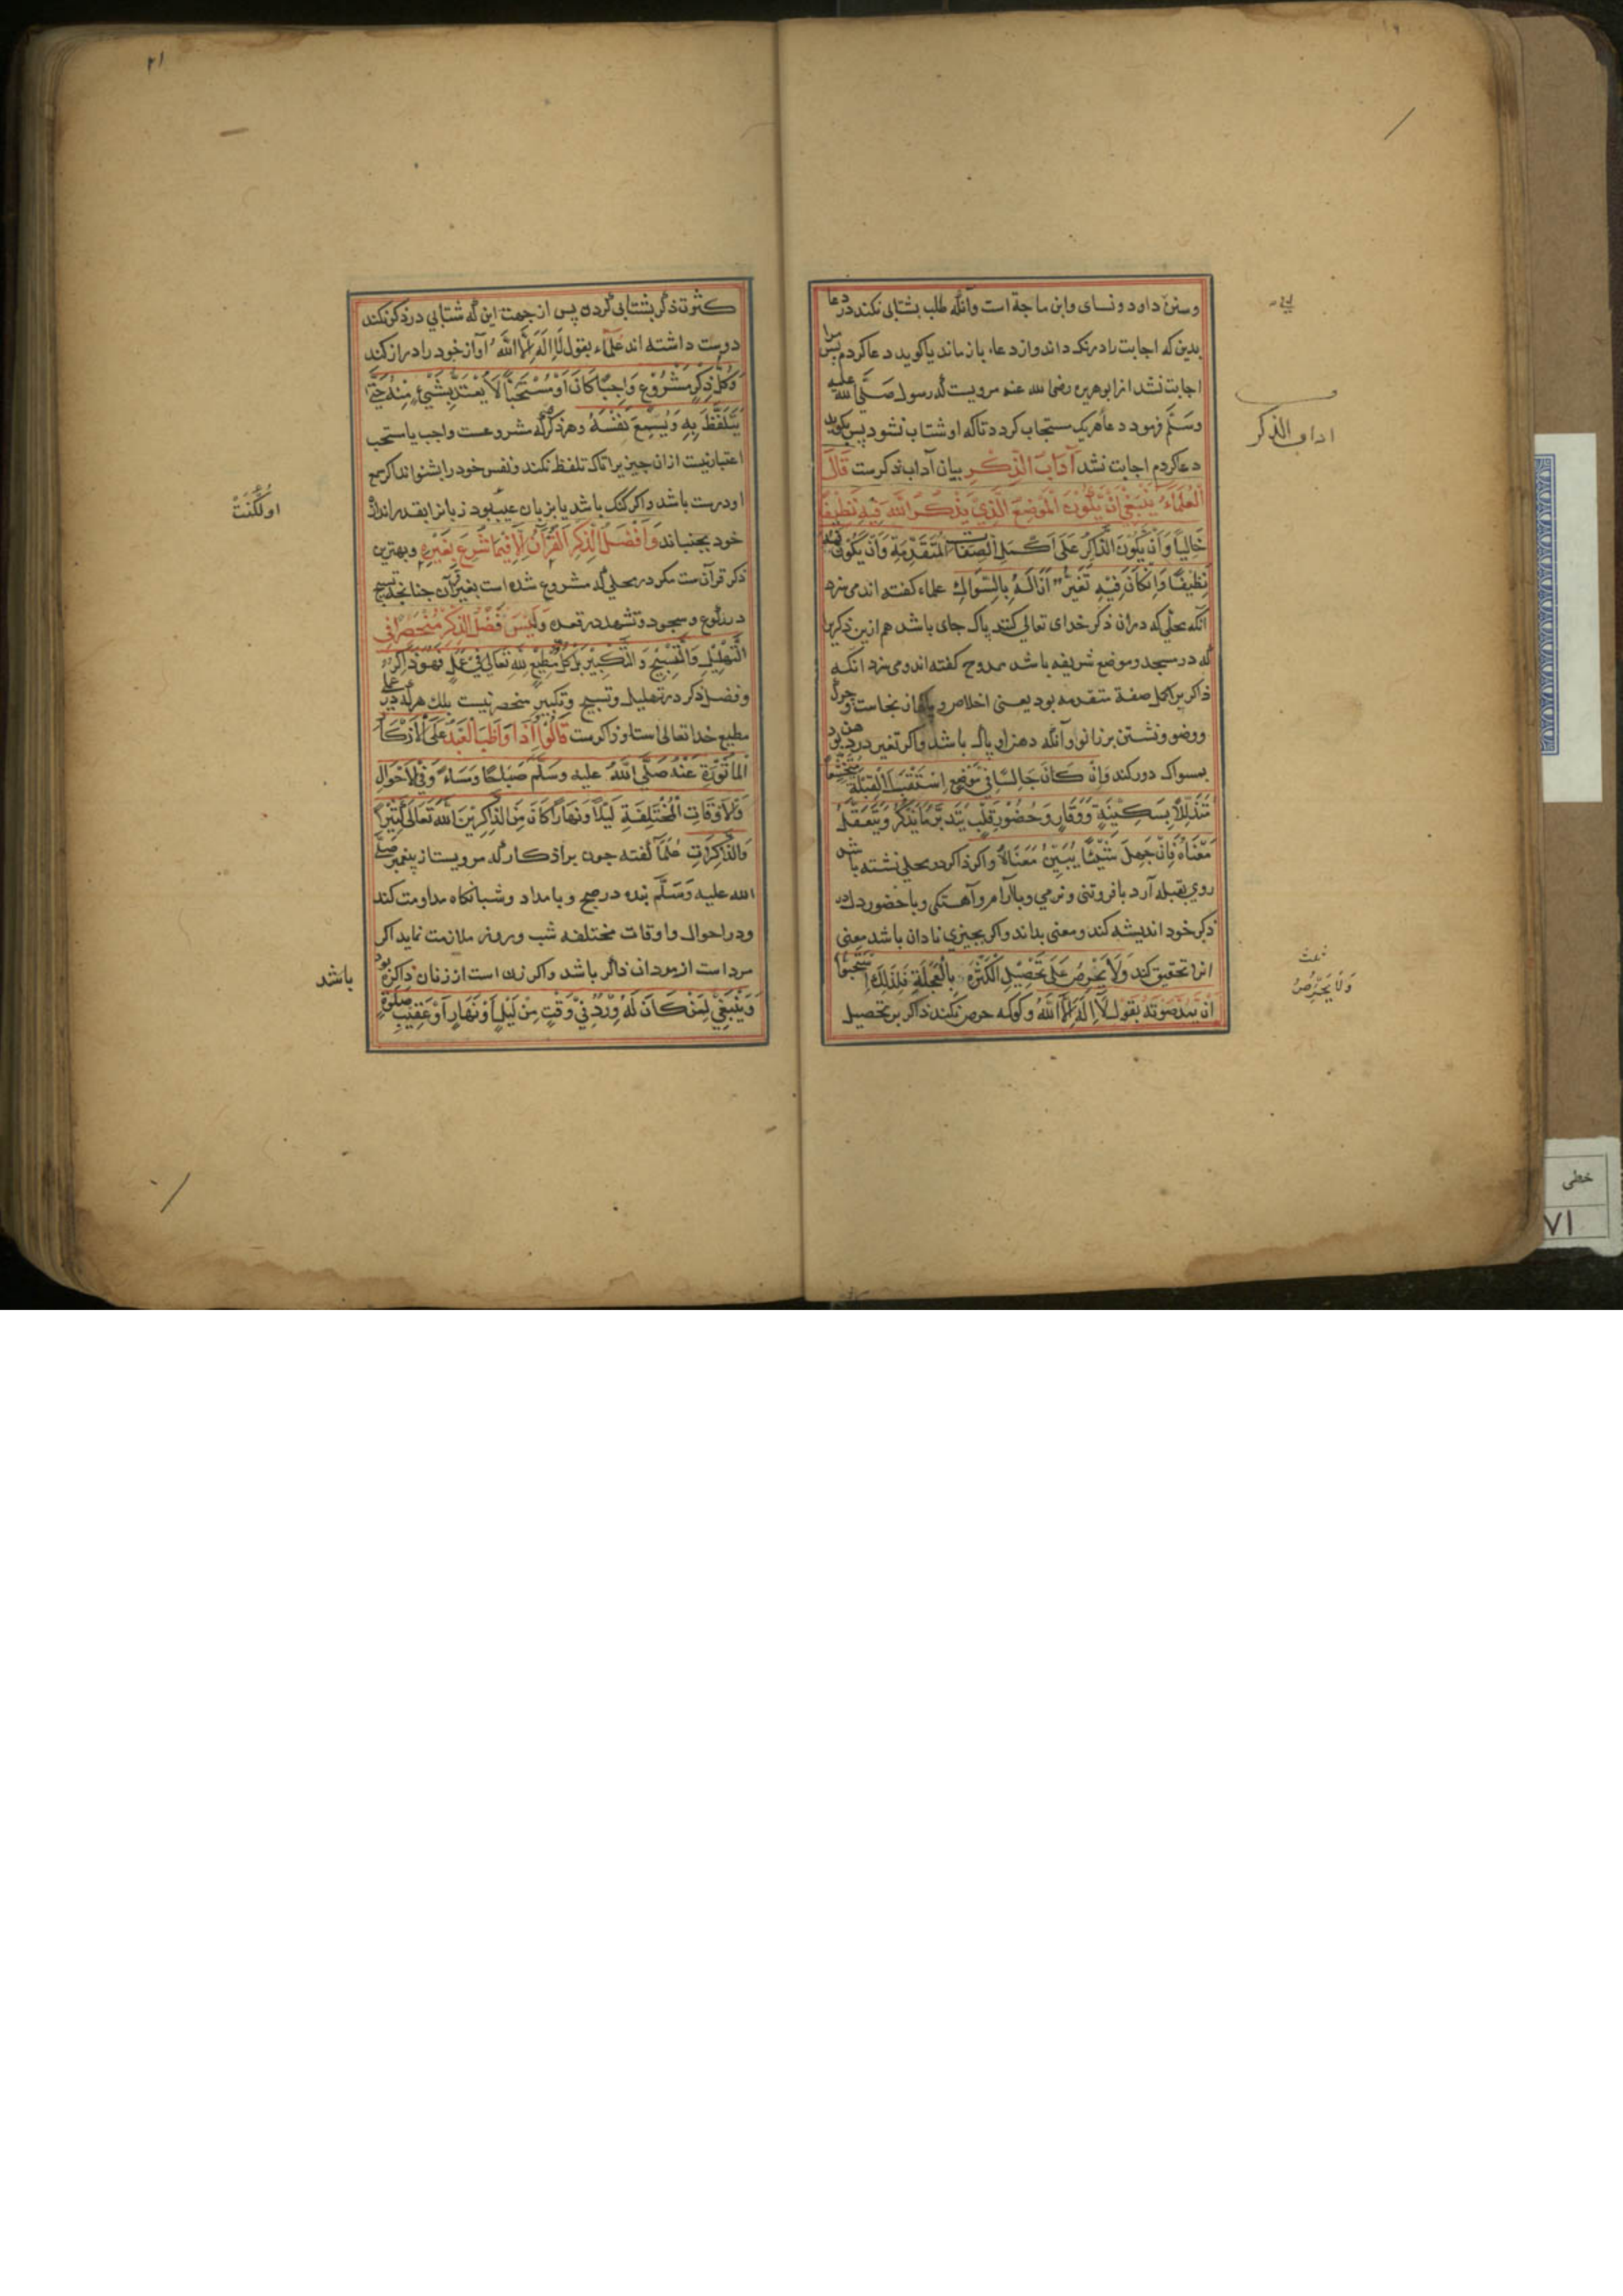 وسنن داود و نسای وابن ماجة است وآنکه طلب بشتابی نکند در دعا
بدین که اجابت را درنک داند واز دعا باز ماند یا کوید دعا کردم پس مرا
اجابت نشد از ابو هریره رضی الله عنه مرویست که رسول صَلَّی الله علیه
وَسَلَّم فرمود دعاء هریک مستجاب کردد تا که او شتاب نشود پس بکوید
دعا کردم اجابت نشد آدَابَ الذِّکْرِ بیان آداب ذکرست قَالَ
الْعُلَمَاءُ یَنْبَغِیْ اَنْ یَّکُوْنَ الْمَوْضِعُ الَّذِیْ یَذْکُرُ اللهَ فِیْهِ نَظِیْفًا
خَالِیًا وَاَنْ یَّکُوْنَ الذَّاکِرُ عَلَی اَکْمَلِ الصِّفَاتِ الْمُتَقَدِّمَةِ وَاَنْ یَکُوْنَ فمه
نَظِیْفًا وَاِنْ کَانَ فِیْهِ تَغَیُّرٌ اَزَالَهُ بِالسِّوَاكِ علماء کفته اند می سزد
آنکه محلی که در ان ذکر خدای تعالی کنند پاک جای باشد هم ازین ذکرین
که در مسجد وموضع شریفه باشد ممدوح کفته اند ومی سزد انکه
ذاکر بر اکمل صفة متقدمه بود یعنی اخلاص و پاکی از نجاست و چرک
ووضو ونشستن بر زانو وآنکه دهن او پاک باشد واکر تغیر در دهن بود
بمسواک دور کند وَاِنْ کَانَ جَالِسًا فِیْ مَوْضِعٍ اِسْتَقْبَلَ الْقِبْلَةَ مُتَخَشِّعًا
مُتَذَلِّلًا بِسَکِیْنَةٍ وَوَقَارٍ وَحُضُوْرِ قَلْبٍ یَتَدَبَّرُ مَا یَذْکُرُ وَیَتَعَقَّلُ
مَعْنَاهُ فَاِنْ جَهِلَ شَیْئًا یُبَیِّنُ مَعْنَاهُ واکر ذاکر در محلی نشسته باشد
روی بقبله آرد با فروتنی و نرمی و با آرام وآهستکی وبا حضور دل در
ذکر خود اندیشه کند ومعنی بداند واکر بچیزی نادان باشد معنی
انرا تحقیق کند وَلَا یَحْرِصُ عَلَی تَحْصِیْلِ الْکَثْرَةِ بِالْعَجَلَةِ فَلِذٰلِكَ اسْتَحَبُّوْا
اَنْ یَمُدَّ صَوْتَهُ بِقَوْلِ لَا اِلٰهَ اِلَّا اللهُ و کوکه حرص نکند ذاکر بر تحصیل
اداب الذکر
وَلَا یَحْرِصُ
۲۱
کثرت ذکر بشتابی کردن پس از جهت این که شتابی در ذکر نکند
دوست داشته اند علماء بقول لَا اِلٰهَ اِلَّا اللهُ آواز خود را دراز کند
وَکُلُّ ذِکْرٍ مَشْرُوْعٍ وَاجِبًا کَانَ اَوْ مُسْتَحَبًّا لَا یُعْتَدُّ بِشَیْءٍ مِنْهُ حَتّٰی
یَتَلَفَّظَ بِهِ وَیُسْمِعَ نَفْسَهُ وهر ذکر که مشروعست واجب یا مستحب
اعتبار نیست ازان چیز یرا تاکه تلفظ نکند ونفس خود را بشنواند اکر سمع
او درست باشد واکر کنک باشد یا بزبان عیب بود زبانرا بقدر اندازه
خود بجنباند وَاَفْضَلُ الذِّکْرِ الْقُرْآنُ اِلَّا فِیْمَا شُرِعَ بِغَیْرِهِ وبهترین
ذکر قرآنست مکر در محلی که مشروع شده است بغیر قرآن چنانچه تسبیح
در رکوع وسجود و تشهد در قعده وَلَیْسَ فَضْلُ الذِّکْرِ مُنْحَصِرًا فِی
التَّهْلِیْلِ وَالتَّسْبِیْحِ وَالتَّکْبِیْرِ بَلْ کُلُّ مُطِیْعٍ لِلّٰهِ تَعَالٰی فِیْ عَمَلٍ فَهُوَ ذَاکِرٌ
وفضل ذکر در تهلیل وتسبیح وتکبیر منحصر نیست بلك هر که در عملی
مطیع خدا تعالی است او ذاکرست قَالُوْا اِذَا وَاظَبَ الْعَبْدُ عَلَی الْاَذْکَارِ
الْمَأْثُوْرَةِ عَنْهُ صَلَّی اللهُ علیه وسَلَّمَ صَبَاحًا وَمَسَاءً وَفِی الْاَحْوَالِ
وَالْاَوْقَاتِ الْمُخْتَلِفَةِ لَیْلًا وَنَهَارًا کَانَ مِنَ الذَّاکِرِیْنَ اللهَ تَعَالٰی کَثِیْرًا
وَالذَّاکِرَاتِ علماء کفته چون بر اذکار که مرویست از پیغمبر صلّی
الله علیه وَسَلَّم بنده در صبح و بامداد وشبانکاه مداومت کند
ودر احوال واوقات مختلفه شب وروز ملازمت نماید اکر
مرد است از مردان ذاکر باشد واکر زن است از زنان ذاکره بود
وَیَنْبَغِیْ لِمَنْ کَانَ لَهُ وِرْدٌ فِیْ وَقْتٍ مِنْ لَیْلٍ اَوْ نَهَارٍ اَوْ عَقِیْبِ صَلٰوةٍ
باشد
خطی
۷۱